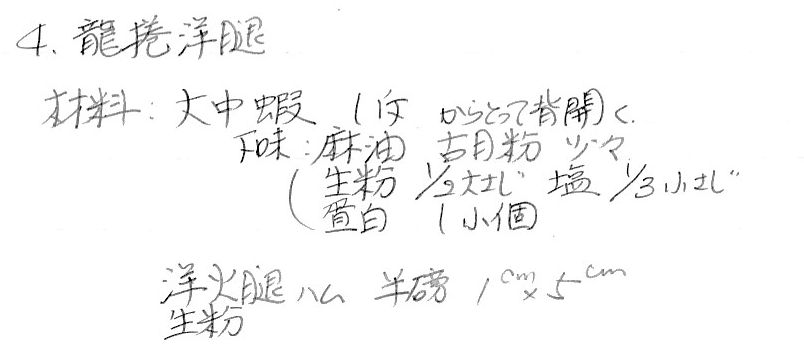 4. 龍捲洋腿
材料: 大中蝦 1斤 からとって背開く.
下味: 麻油 古月粉 少々
(生粉 1/2大さじ 塩 1/3小さじ
蛋白 1小個
洋火腿ハム 半磅 1cm×5cm
生粉